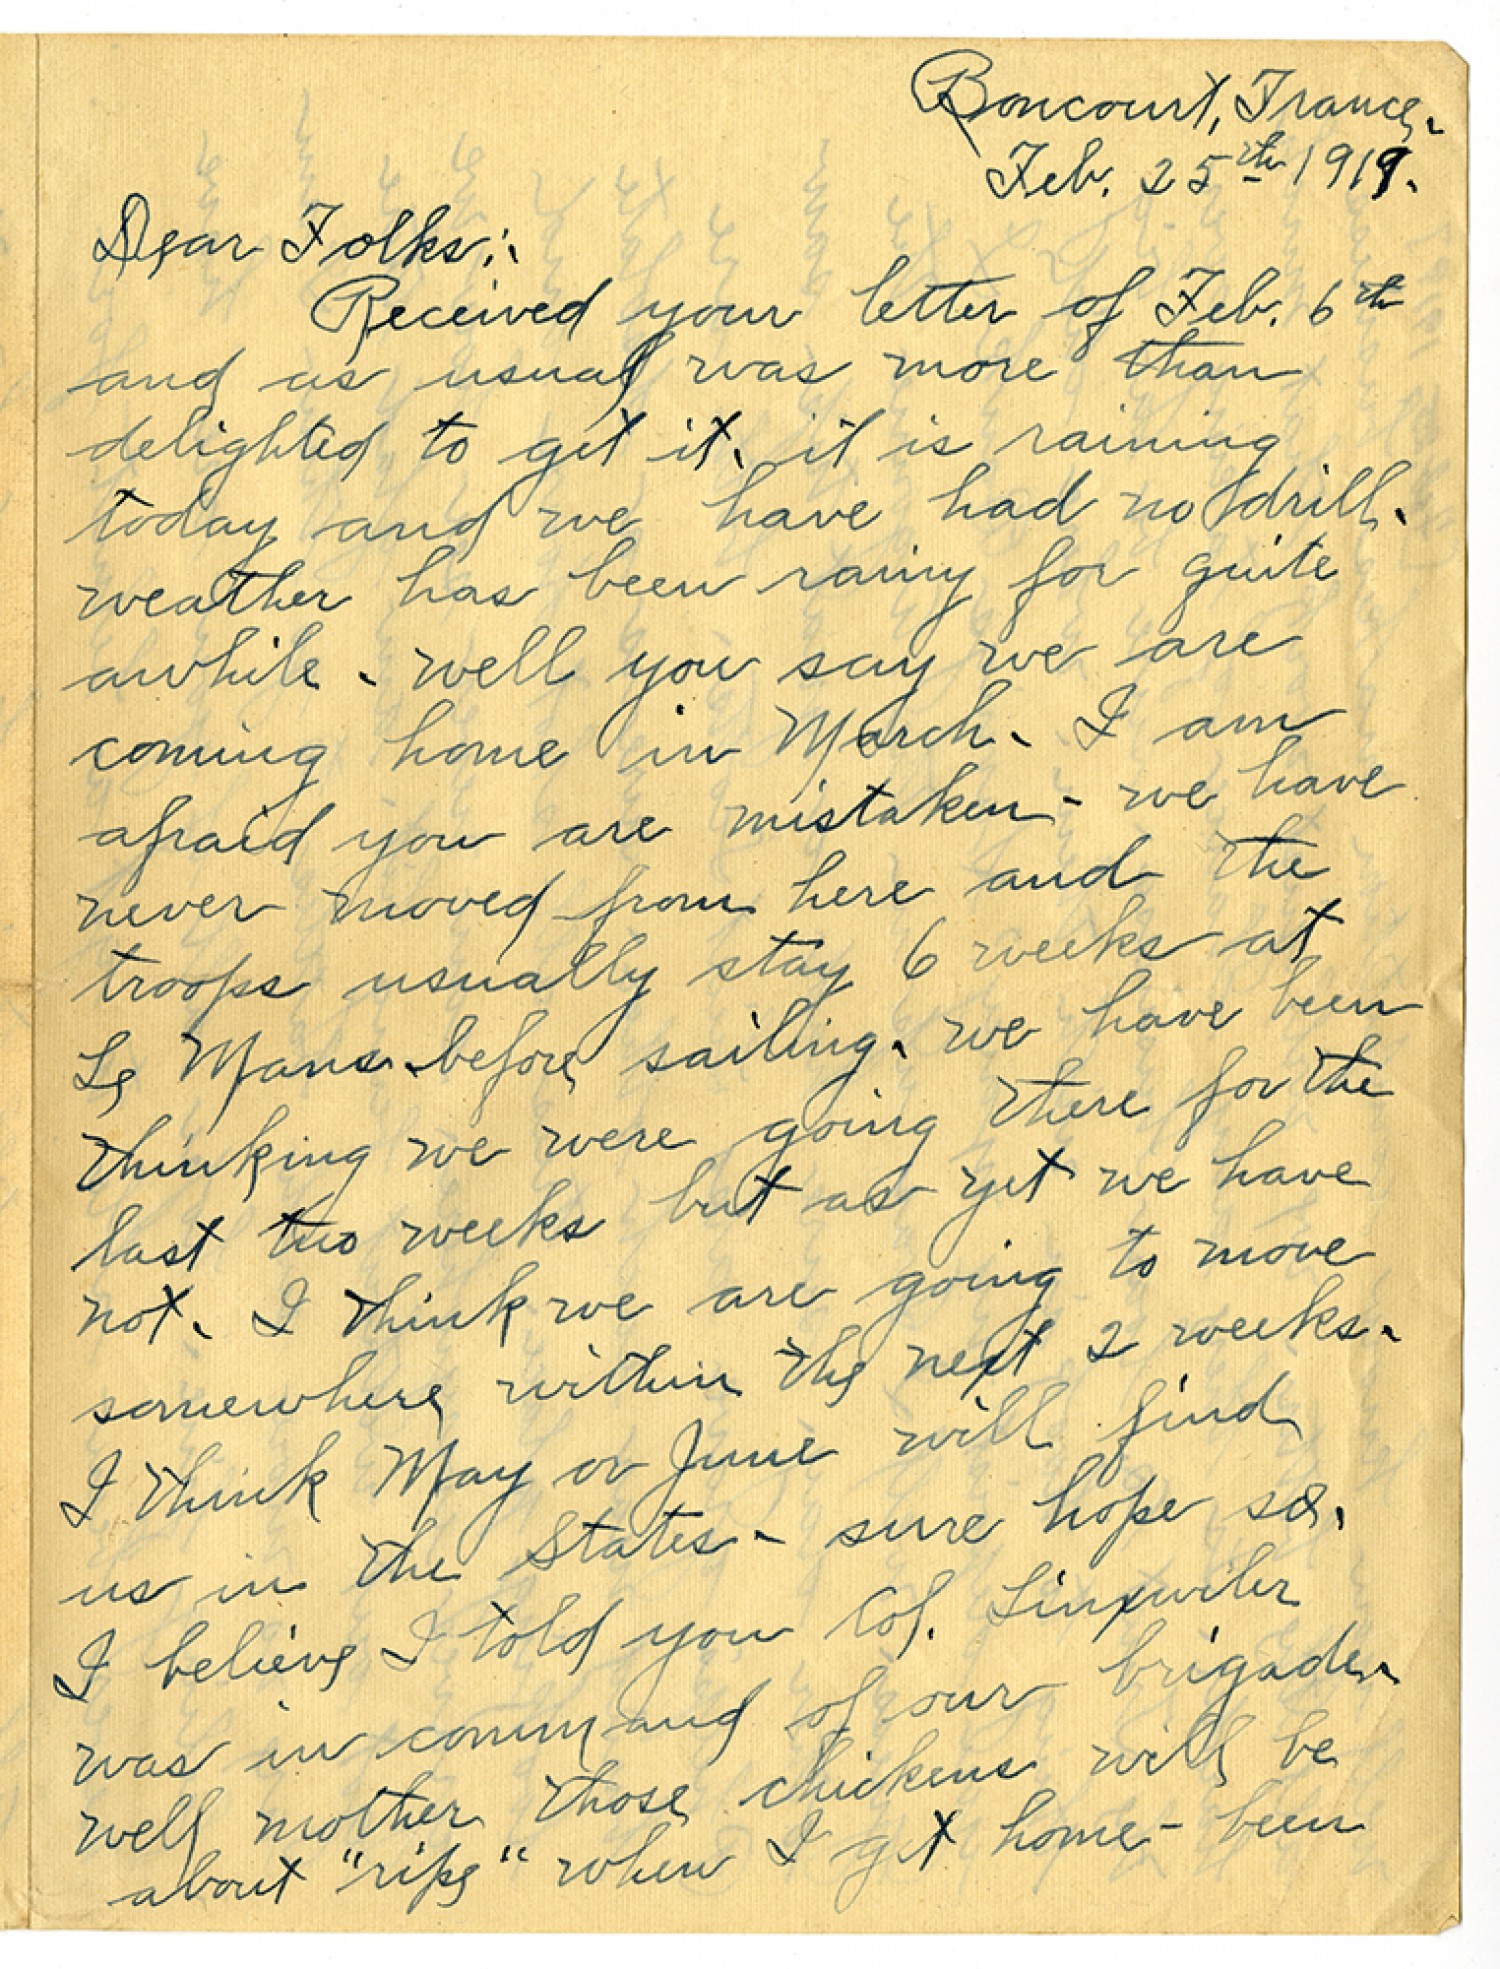 Boncourt, France.
Feb. 25th 1919.
Dear Folks:
Received your letter of Feb. 6th
and as usual was more than
delighted to get it. it is raining
today and we have had no drill.
weather has been rainy for quite
awhile. well you say we are
coming home in March. I am
afraid you are mistaken - we have
never moved from here and the
troops usually stay 6 weeks at
Le Mans before sailing. we have been
thinking we were going there for the
last two weeks but as yet we have
not. I think we are going to move
somewhere within the next 2 weeks.
I think May or June will find
us in the States - sure hope so.
I believe I told you Col. Linxwiler
was in command of our brigade.
well mother those chickens will be
about "ripe" when I get home - been